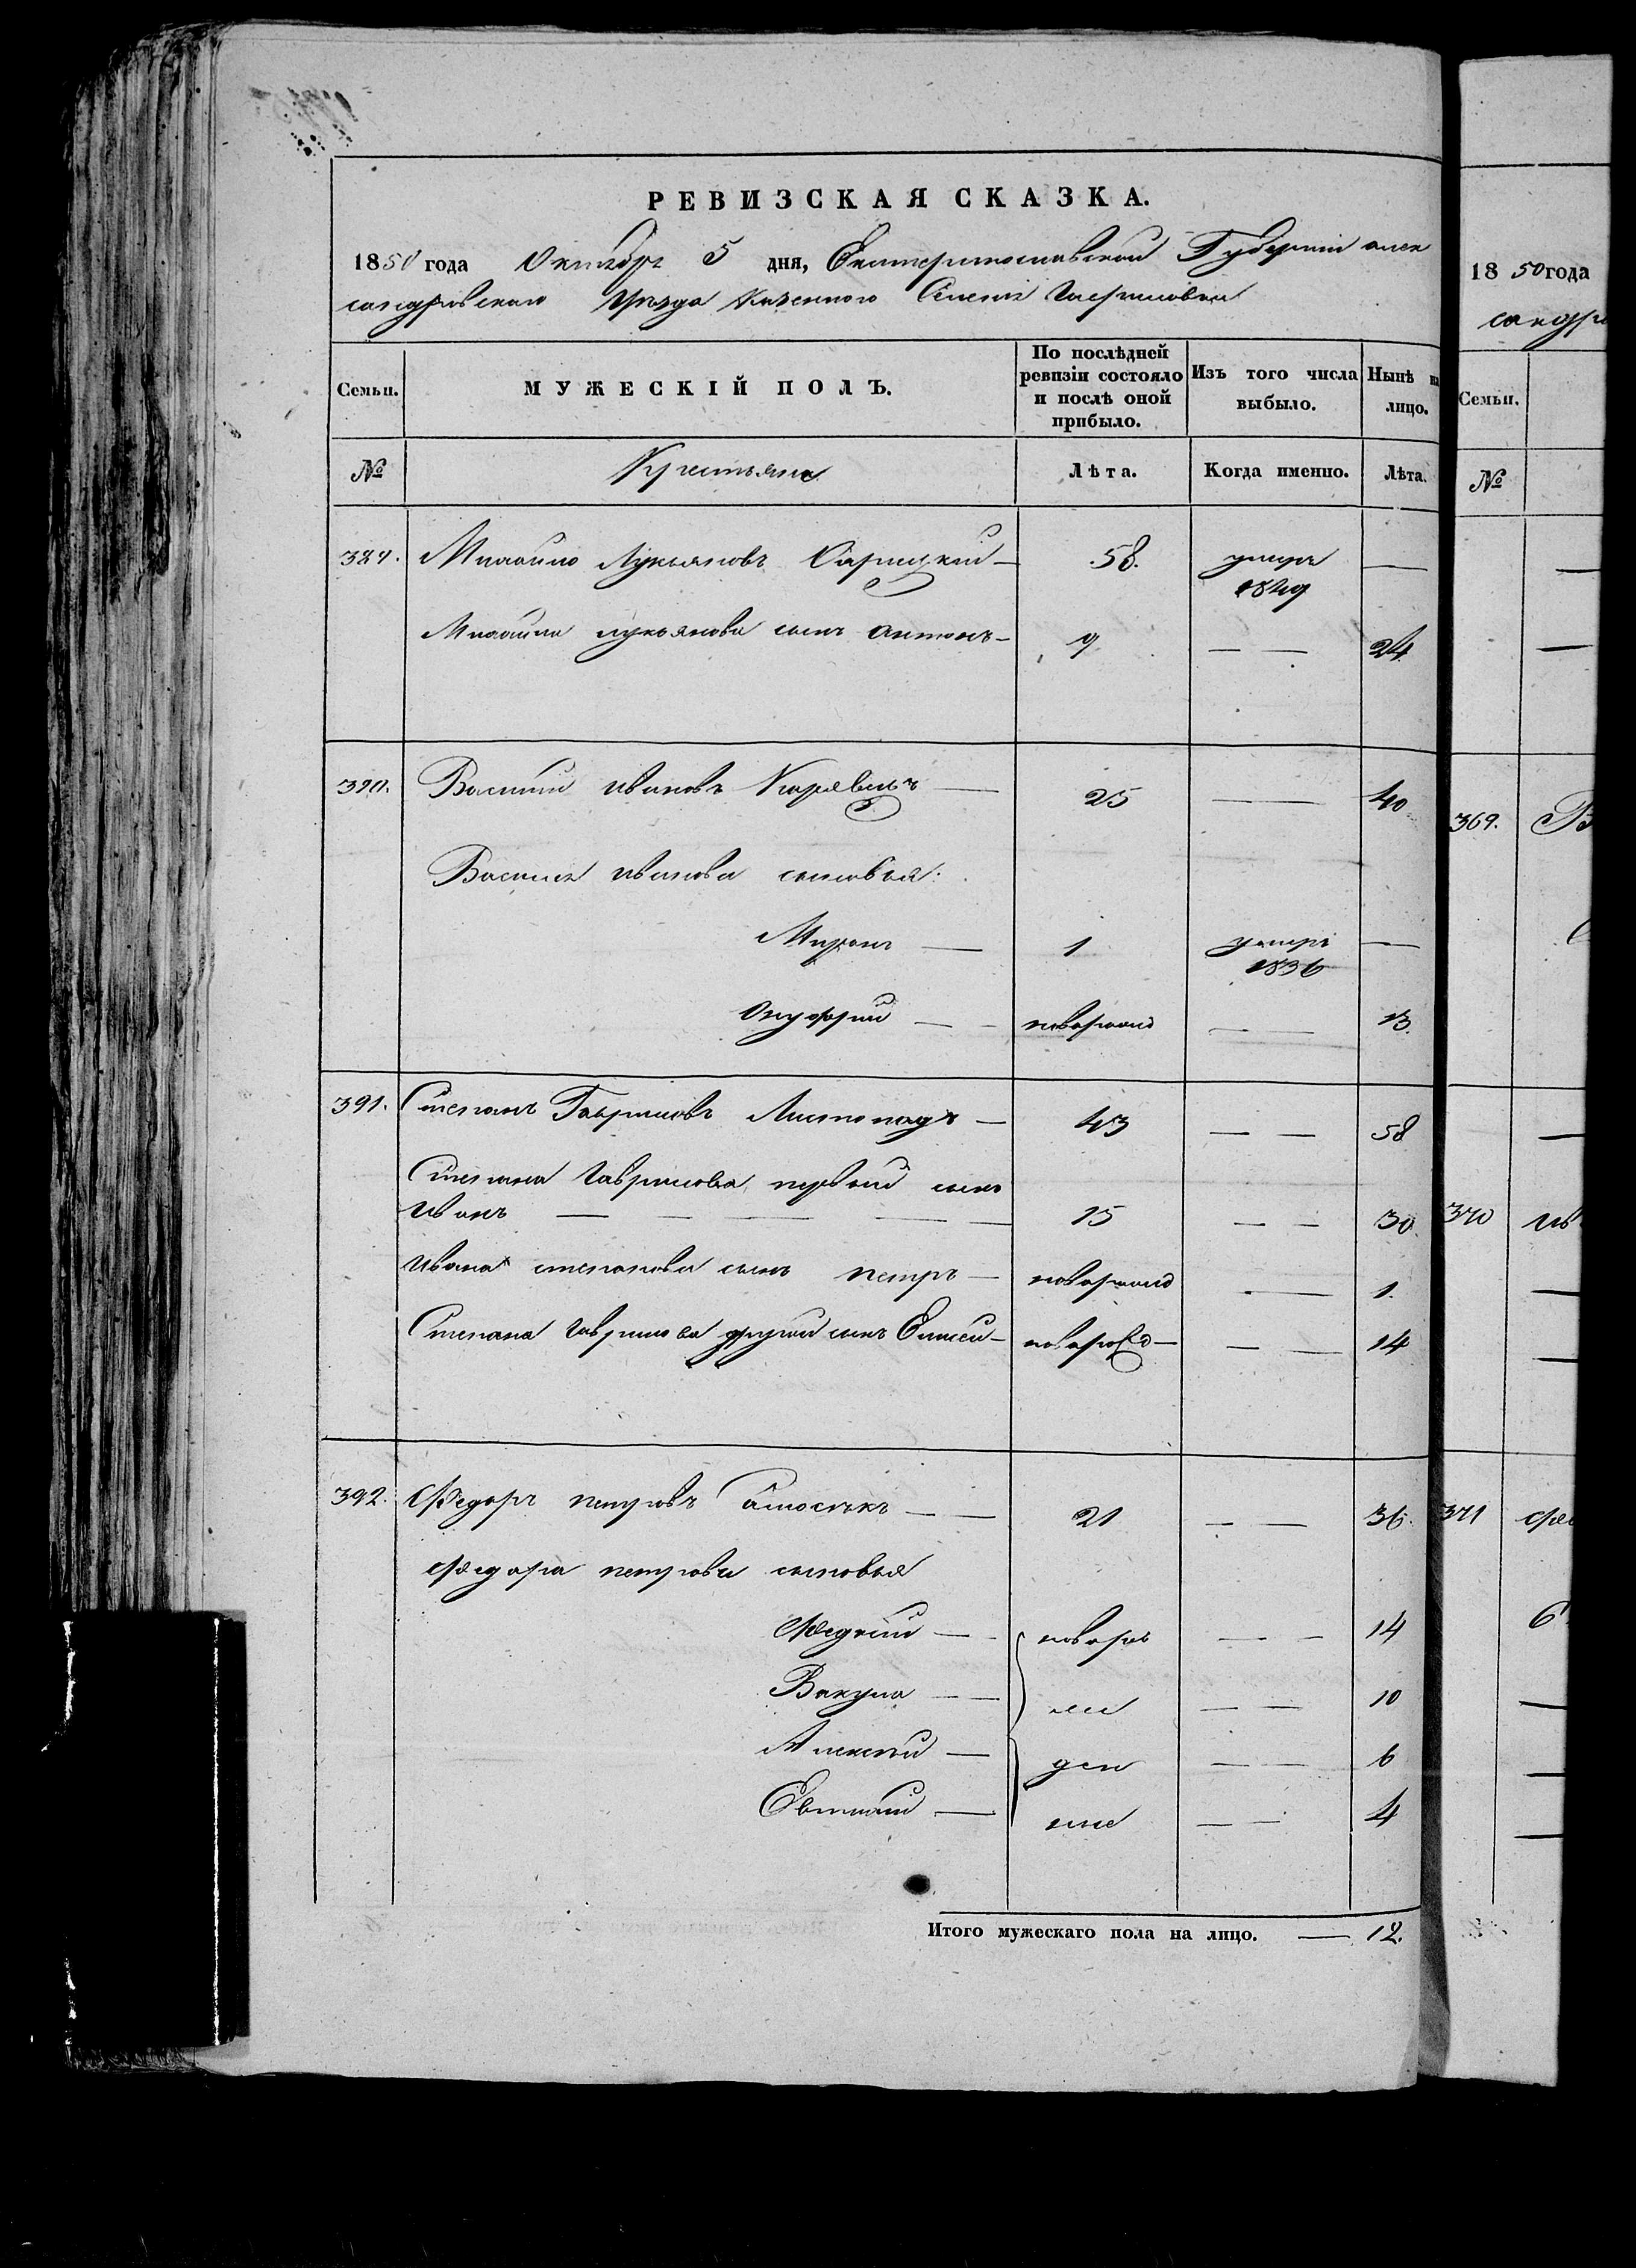 РЕВИЗСКАЯ СКАЗКА.
1850 года Октября 5 дня, Екатеринославской Губернии алек
сандровского Уезда Казенного Селения Гавриловки
Семьи.
МУЖЕСКІЙ ПОЛЪ.
По послѣдней ревизіи состояло и послѣ оной прибыло.
Изъ того числа выбыло.
Нынѣ на лицо.
№
Крестьяне
Лѣта.
Когда именно.
Лѣта.
389. Михайло Лукьяновъ 58. умеръ 1849 —
Михайла лукьянова сынъ антонъ — 9 — — 24
390. Василий ивановъ — 25 — 40
Василия иванова сыновья:
Миронъ — 1 умеръ 1836 —
Онуфрий — новорожд — 13.
391. Степанъ Гавриловъ Листопадъ — 43 — — 58
Степана гаврилова первый сынъ
иванъ — — — — — 15 — — 30.
ивана степанова сынъ петръ — новорожд — — 1.
Степана гаврилова другий сынъ Елисей — новорожд — — — 14
392. Федоръ петровъ — — 21 — — 36.
Федора петрова сыновья
— новорож — — 14
Вакула — — ден — — 10
Алексей — — — 6
Евтихий — ные — — 4
Итого мужескаго пола на лицо. — 12.
18 50 года
сандро
Семьи.
№
369. В
370 ив
371 фе